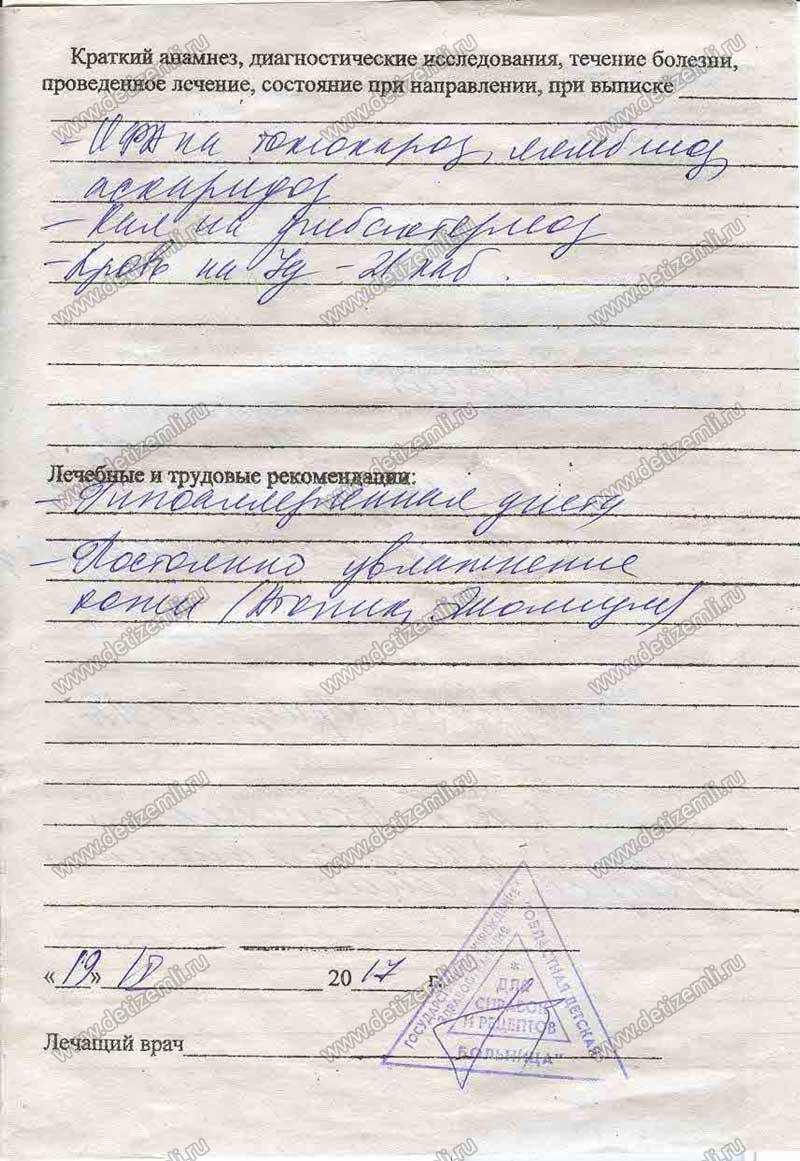 Краткий анамнез, диагностические исследования, течение болезни,
проведенное лечение, состояние при направлении, при выписке
- ИФА на токсокароз, лямблиоз,
аскаридоз
- Кал на дисбактериоз
- Кровь на
Лечебные и трудовые рекомендации:
- Гипоаллергенная диета
- Постоянно увлажнение
кожи (Атопик,
« 19 » 20 17 г.
Лечащий врач
ГОСУДАРСТВЕННОЕ УЧРЕЖДЕНИЕ
ЗДРАВООХРАНЕНИЯ
"ОБЛАСТНАЯ ДЕТСКАЯ
БОЛЬНИЦА"
*
ДЛЯ
СПРАВОК
И РЕЦЕПТОВ
www.detizemli.ru